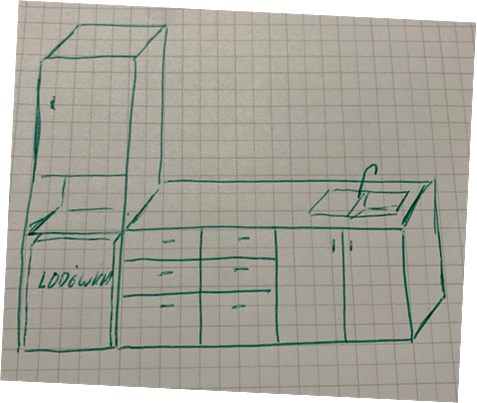 LODÓWKA